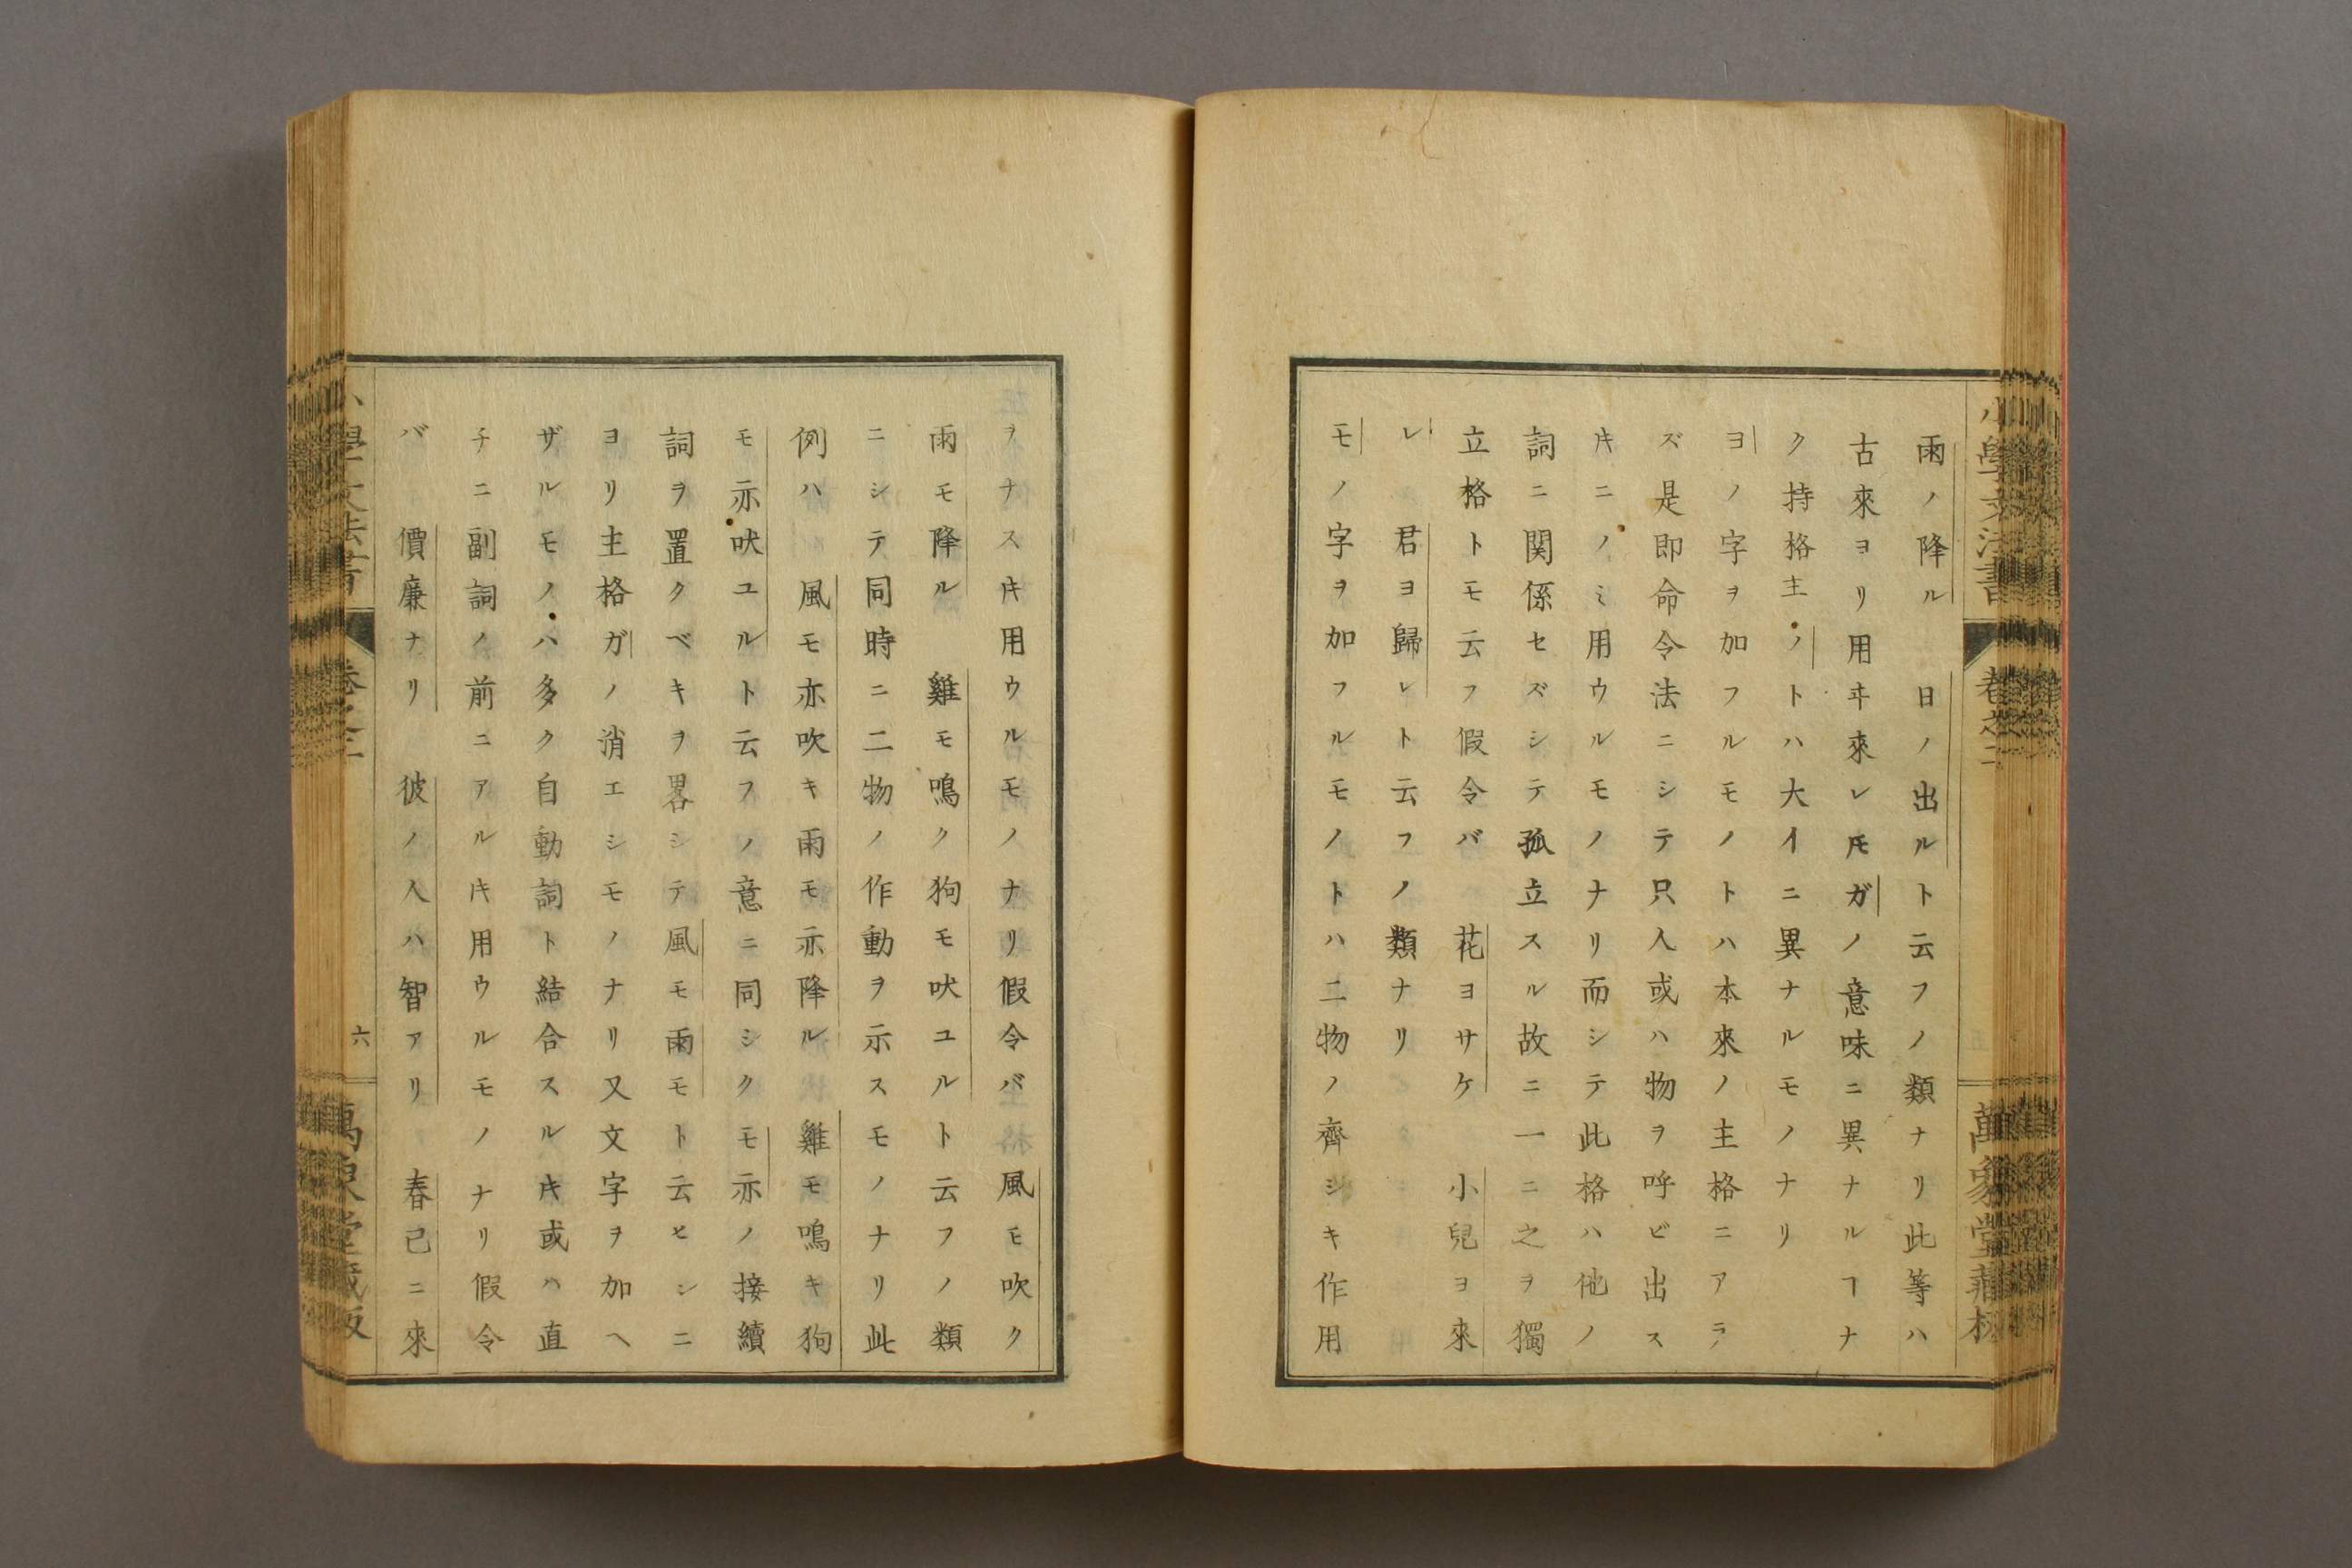 小學文法書 卷之二 萬象堂藏板
雨ノ降ル　日ノ出ルト云フノ類ナリ此等ハ
古來ヨリ用ヰ來レ𪜈ガノ意味ニ異ナルヿナ
ク持格主ノトハ大イニ異ナルモノナリ
ヨノ字ヲ加フルモノトハ本來ノ主格ニアラ
ズ是即命令法ニシテ只人或ハ物ヲ呼ビ出ス
𪜈ニノミ用ウルモノナリ而シテ此格ハ他ノ
詞ニ関係セズシテ孤立スル故ニ一ニ之ヲ獨
立格トモ云フ假令バ　花ヨサケ　小兒ヨ來
レ　君ヨ歸レト云フノ類ナリ
モノ字ヲ加フルモノトハ二物ノ齊シキ作用
ヲナス𪜈用ウルモノナリ假令バ　風モ吹ク
雨モ降ル　雞モ鳴ク狗モ吠ユルト云フノ類
ニシテ同時ニ二物ノ作動ヲ示スモノナリ此
例ハ　風モ亦吹キ雨モ亦降ル　雞モ鳴キ狗
モ亦吠ユルト云フノ意ニ同シクモ亦ノ接續
詞ヲ置クベキヲ畧シテ風モ雨モト云ヒシニ
ヨリ主格ガノ消エシモノナリ又文字ヲ加ヘ
ザルモノハ多ク自動詞ト結合スル𪜈或ハ直
チニ副詞ノ前ニアル𪜈用ウルモノナリ假令
バ　價廉ナリ　彼ノ人ハ智アリ　春已ニ來
小學文法書 卷之二 六 萬象堂藏板